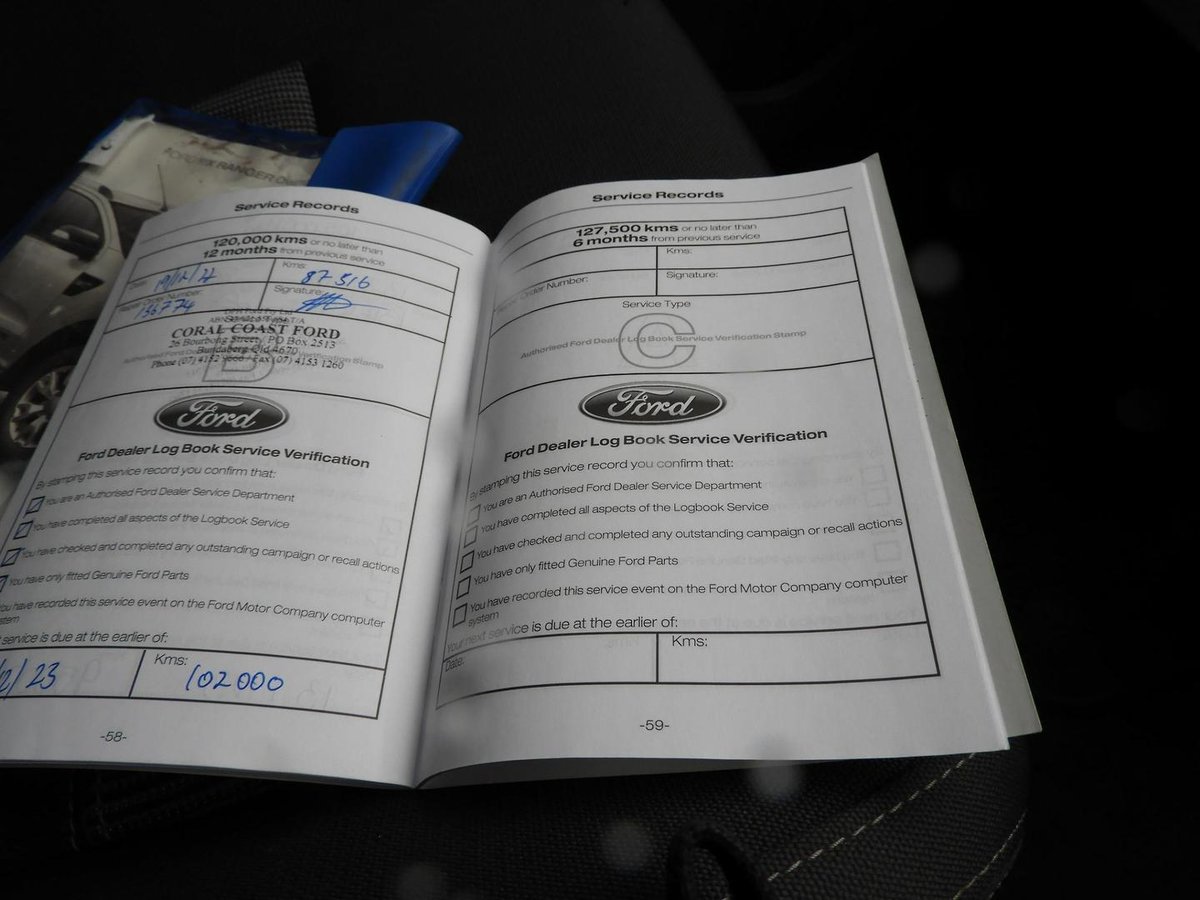 RANGER
Service Records
120,000 kms or no later than
12 months from previous service
Date: 19/12/22
Kms: 87 516
Order Number:
136774
Signature:
CORAL COAST FORD
26 Bourbong Street/PO Box 2513
Bundaberg Qld 4670
Phone (07) 4152 / Fax (07) 4153 1260
Verification Stamp
B
Ford
Ford Dealer Log Book Service Verification
By stamping this service record you confirm that:
You are an Authorised Ford Dealer Service Department
You have completed all aspects of the Logbook Service
You have checked and completed any outstanding campaign or recall actions
You have only fitted Genuine Ford Parts
You have recorded this service event on the Ford Motor Company computer
system
service is due at the earlier of:
/23
Kms:
102000
-58-
Service Records
127,500 kms or no later than
6 months from previous service
Kms:
Order Number:
Signature:
Service Type
C
Authorised Ford Dealer Log Book Service Verification Stamp
Ford
Ford Dealer Log Book Service Verification
By stamping this service record you confirm that:
You are an Authorised Ford Dealer Service Department
You have completed all aspects of the Logbook Service
You have checked and completed any outstanding campaign or recall actions
You have only fitted Genuine Ford Parts
You have recorded this service event on the Ford Motor Company computer
system
Your next service is due at the earlier of:
Date:
Kms:
-59-